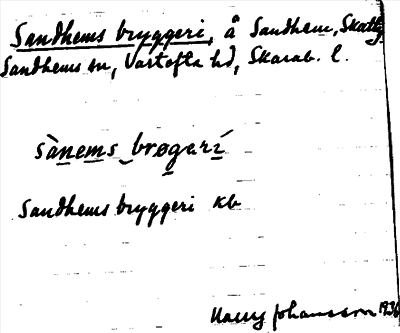 Sandhems bryggeri, å Sandhem, Skattg.
Sandhems sn, Vartofta hd, Skarab. l.
sànems brøgarí
Sandhems bryggeri kb
Harry Johansson 1936